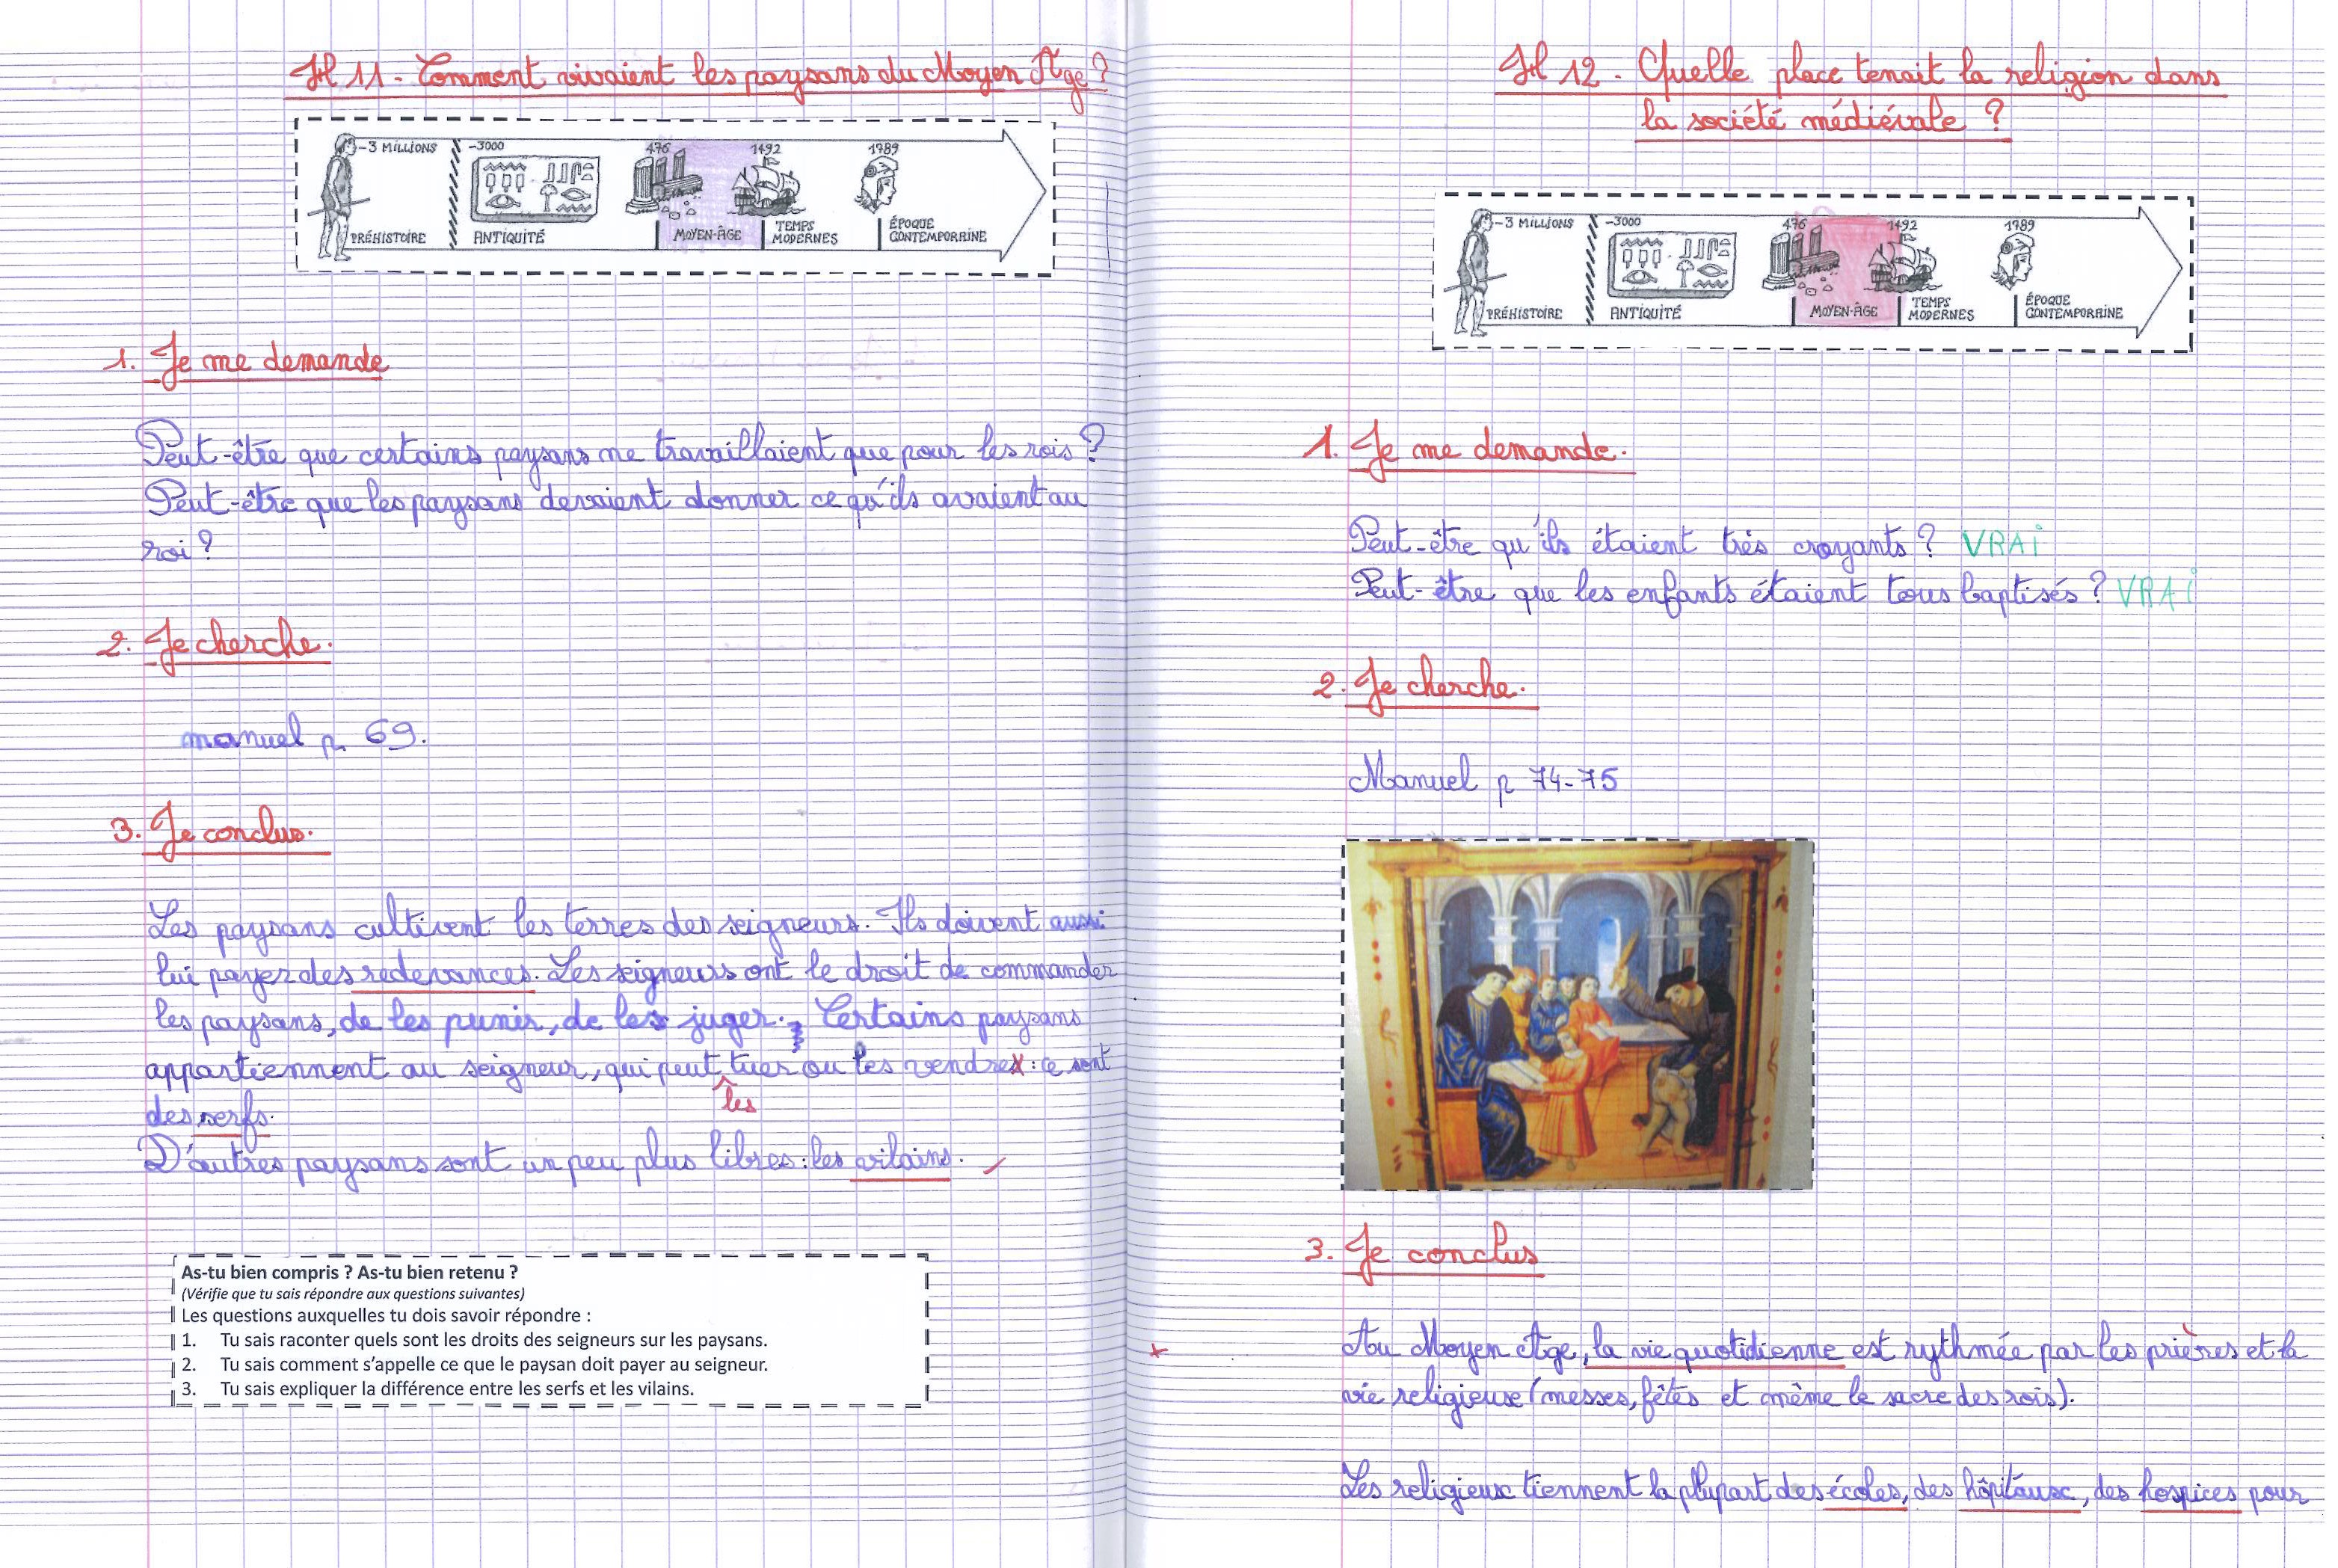 H 11 - Comment vivaient les paysans du Moyen Age ?
-3 MILLIONS -3000 476 1492 1789
PRÉHISTOIRE ANTIQUITÉ MOYEN-ÂGE TEMPS MODERNES ÉPOQUE CONTEMPORAINE
1. Je me demande
Peut-être que certains paysans ne travaillaient que pour les rois ?
Peut-être que les paysans devaient donner ce qu'ils avaient au
roi ?
2. Je cherche.
manuel p 69.
3. Je conclus.
Les paysans cultivent les terres des seigneurs. Ils doivent aussi
lui payer des redevances. Les seigneurs ont le droit de commander
les paysans, de les punir, de les juger. Certains paysans
appartiennent au seigneur, qui peut les tuer ou les vendre : ce sont
des serfs.
D'autres paysans sont un peu plus libres : les vilains.
As-tu bien compris ? As-tu bien retenu ?
(Vérifie que tu sais répondre aux questions suivantes)
Les questions auxquelles tu dois savoir répondre :
1. Tu sais raconter quels sont les droits des seigneurs sur les paysans.
2. Tu sais comment s'appelle ce que le paysan doit payer au seigneur.
3. Tu sais expliquer la différence entre les serfs et les vilains.
H 12 - Quelle place tenait la religion dans
la société médiévale ?
-3 MILLIONS -3000 476 1492 1789
PRÉHISTOIRE ANTIQUITÉ MOYEN-ÂGE TEMPS MODERNES ÉPOQUE CONTEMPORAINE
1. Je me demande.
Peut-être qu'ils étaient très croyants ? VRAI
Peut-être que les enfants étaient tous baptisés ? VRAI
2. Je cherche.
Manuel p 74-75
3. Je conclus
Au Moyen Age, la vie quotidienne est rythmée par les prières et la
vie religieuse (messes, fêtes et même le sacre des rois).
Les religieux tiennent la plupart des écoles, des hôpitaux, des hospices pour